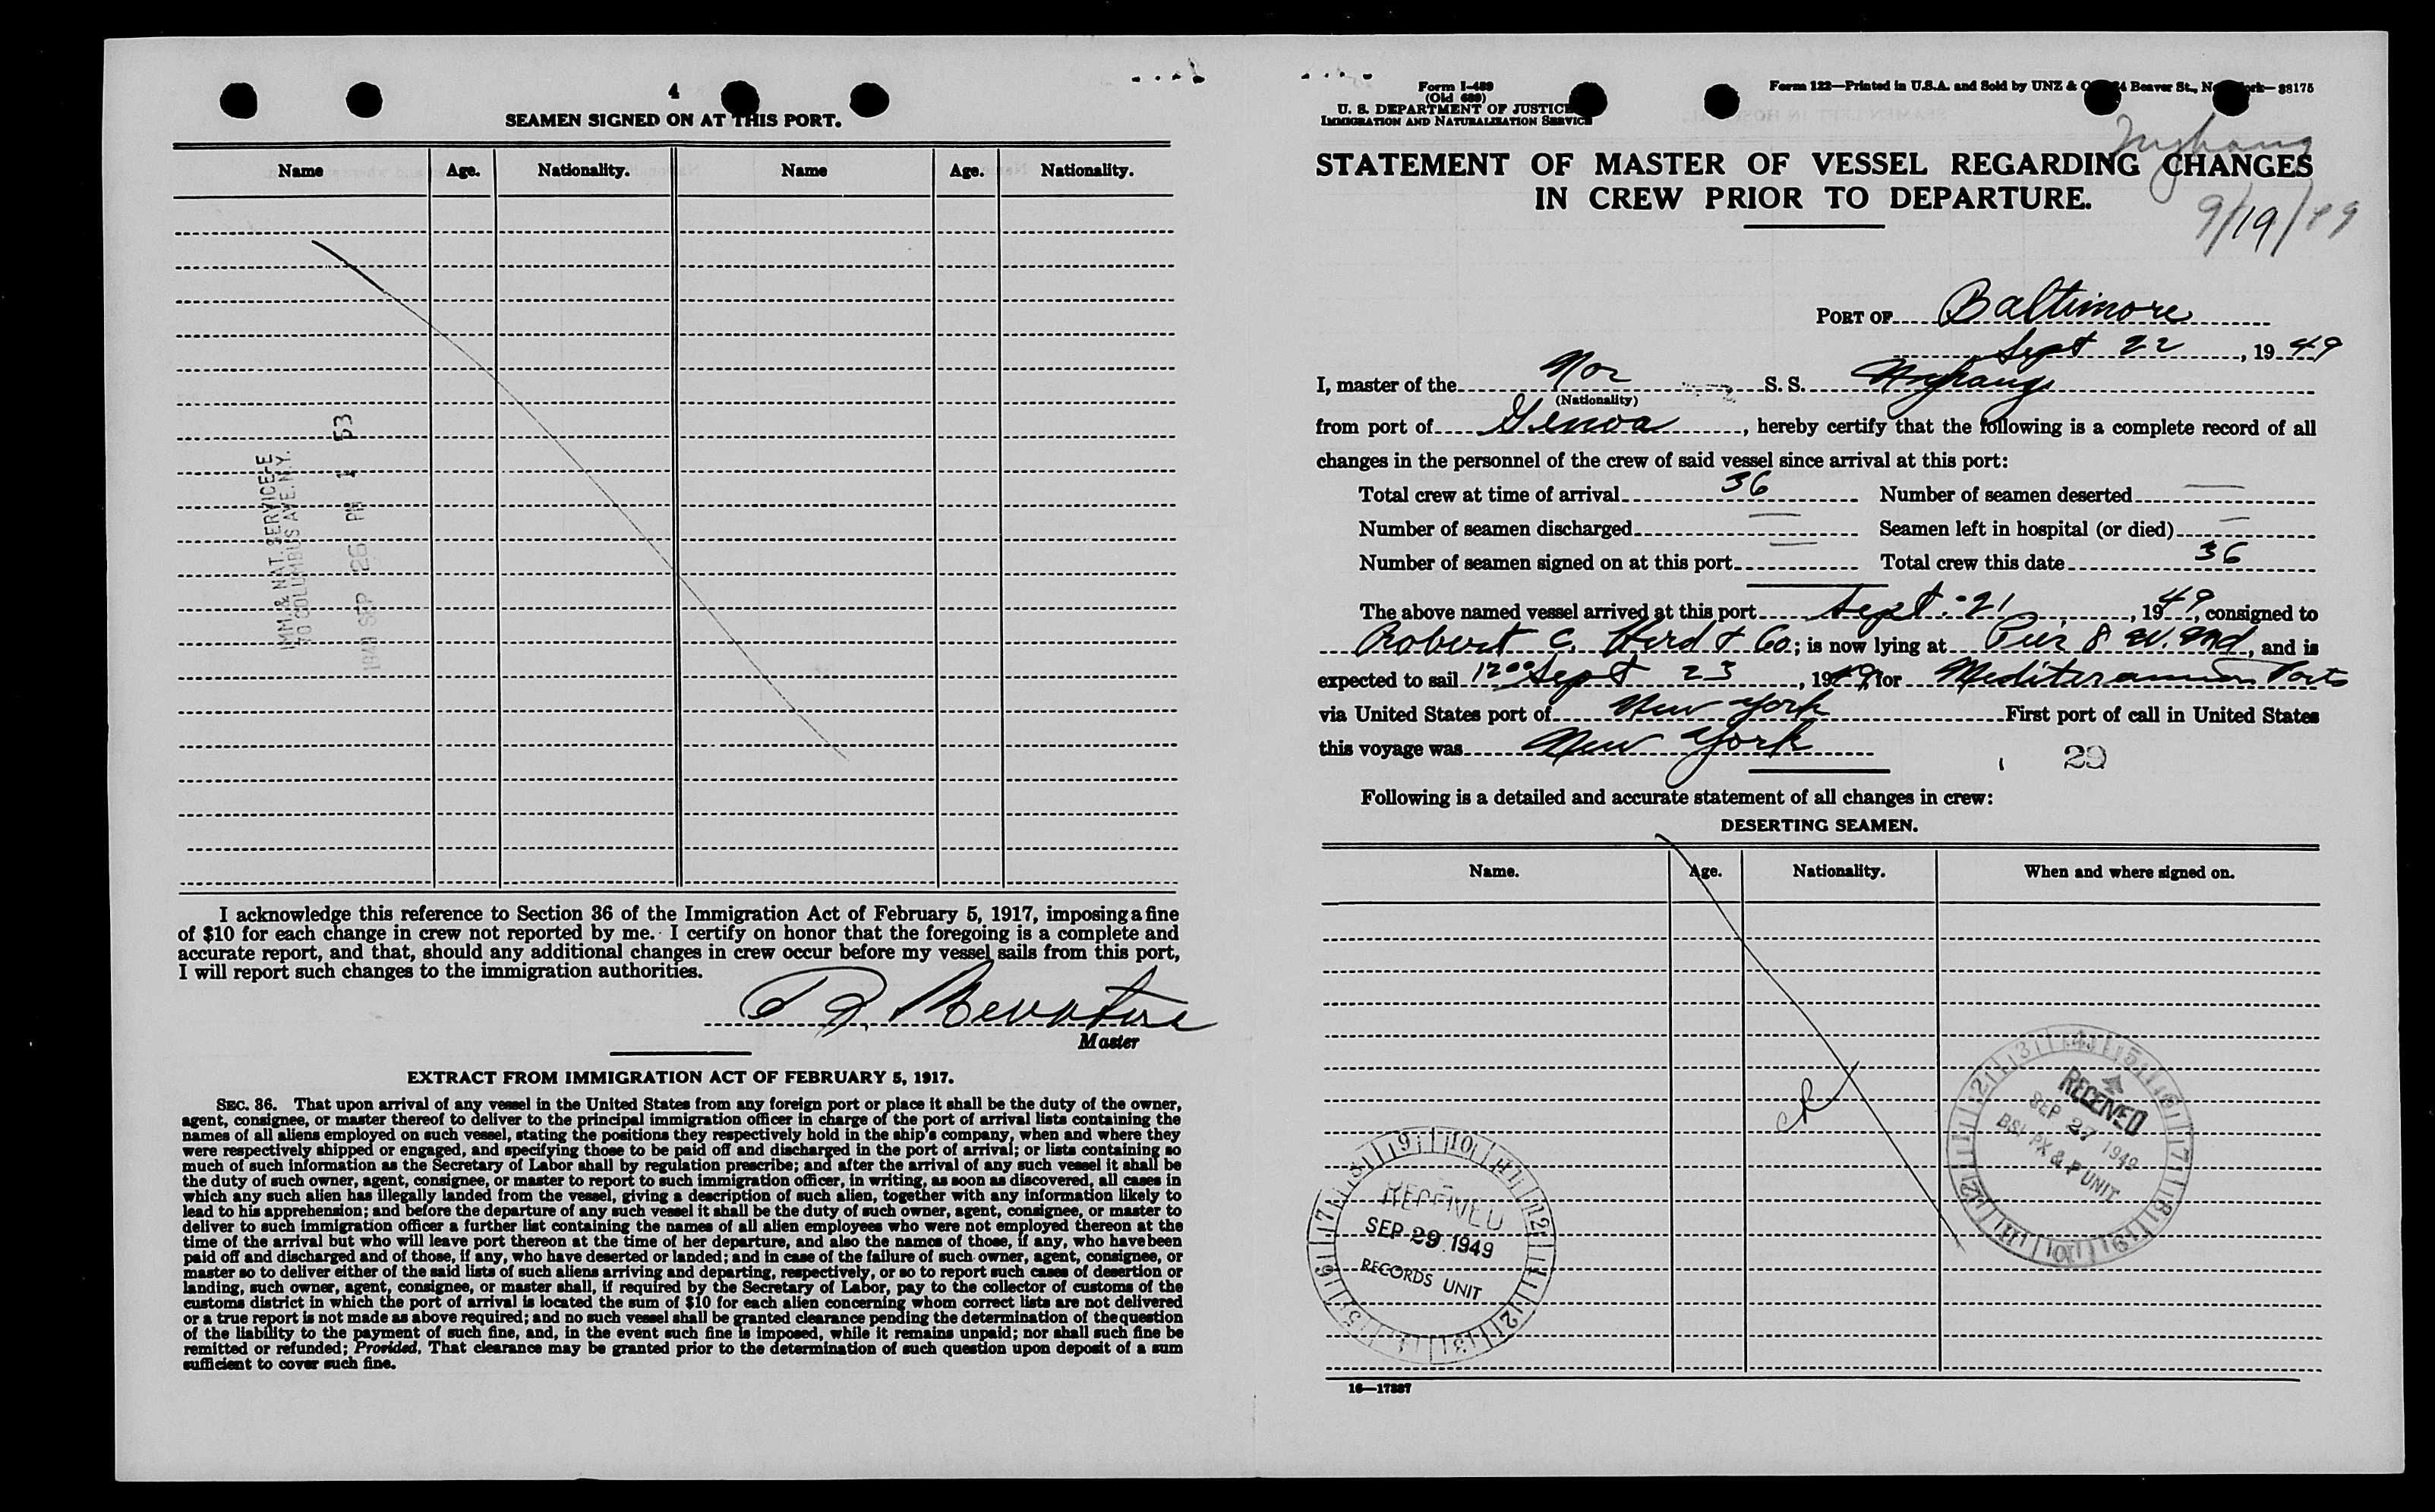 4
SEAMEN SIGNED ON AT THIS PORT.
Name Age. Nationality. Name Age. Nationality.
IMM. & NAT. SERVICE
70 COLUMBUS AVE. N.Y.
1949 SEP 26 PM 1 53
I acknowledge this reference to Section 36 of the Immigration Act of February 5, 1917, imposing a fine
of $10 for each change in crew not reported by me. I certify on honor that the foregoing is a complete and
accurate report, and that, should any additional changes in crew occur before my vessel sails from this port,
I will report such changes to the immigration authorities.
Master
EXTRACT FROM IMMIGRATION ACT OF FEBRUARY 5, 1917.
SEC. 36. That upon arrival of any vessel in the United States from any foreign port or place it shall be the duty of the owner,
agent, consignee, or master thereof to deliver to the principal immigration officer in charge of the port of arrival lists containing the
names of all aliens employed on such vessel, stating the positions they respectively hold in the ship's company, when and where they
were respectively shipped or engaged, and specifying those to be paid off and discharged in the port of arrival; or lists containing so
much of such information as the Secretary of Labor shall by regulation prescribe; and after the arrival of any such vessel it shall be
the duty of such owner, agent, consignee, or master to report to such immigration officer, in writing, as soon as discovered, all cases in
which any such alien has illegally landed from the vessel, giving a description of such alien, together with any information likely to
lead to his apprehension; and before the departure of any such vessel it shall be the duty of such owner, agent, consignee, or master to
deliver to such immigration officer a further list containing the names of all alien employees who were not employed thereon at the
time of the arrival but who will leave port thereon at the time of her departure, and also the names of those, if any, who have been
paid off and discharged and of those, if any, who have deserted or landed; and in case of the failure of such owner, agent, consignee, or
master so to deliver either of the said lists of such aliens arriving and departing, respectively, or so to report such cases of desertion or
landing, such owner, agent, consignee, or master shall, if required by the Secretary of Labor, pay to the collector of customs of the
customs district in which the port of arrival is located the sum of $10 for each alien concerning whom correct lists are not delivered
or a true report is not made as above required; and no such vessel shall be granted clearance pending the determination of the question
of the liability to the payment of such fine, and, in the event such fine is imposed, while it remains unpaid; nor shall such fine be
remitted or refunded; Provided, That clearance may be granted prior to the determination of such question upon deposit of a sum
sufficient to cover such fine.
Form I-489
(Old 689)
U. S. DEPARTMENT OF JUSTICE
IMMIGRATION AND NATURALIZATION SERVICE
Form 122—Printed in U.S.A. and Sold by UNZ & Beaver St., 38175
STATEMENT OF MASTER OF VESSEL REGARDING CHANGES
IN CREW PRIOR TO DEPARTURE.
9/19/49
PORT OF Baltimore
Sept 22, 1949
I, master of the Nor S. S.
(Nationality)
from port of Genoa, hereby certify that the following is a complete record of all
changes in the personnel of the crew of said vessel since arrival at this port:
Total crew at time of arrival 36 Number of seamen deserted —
Number of seamen discharged — Seamen left in hospital (or died) —
Number of seamen signed on at this port — Total crew this date 36
The above named vessel arrived at this port Sept. 21, 1949, consigned to
Robert C. Herd & Co; is now lying at Pier 8 W. Md, and is
expected to sail 12 00 Sept 23, 1949, for Mediterannean Ports
via United States port of New York First port of call in United States
this voyage was New York
29
Following is a detailed and accurate statement of all changes in crew:
DESERTING SEAMEN.
Name. Age. Nationality. When and where signed on.
RECEIVED
SEP 27 1949
BSI PX & P UNIT
RECEIVED
SEP 29 1949
RECORDS UNIT
16—17887